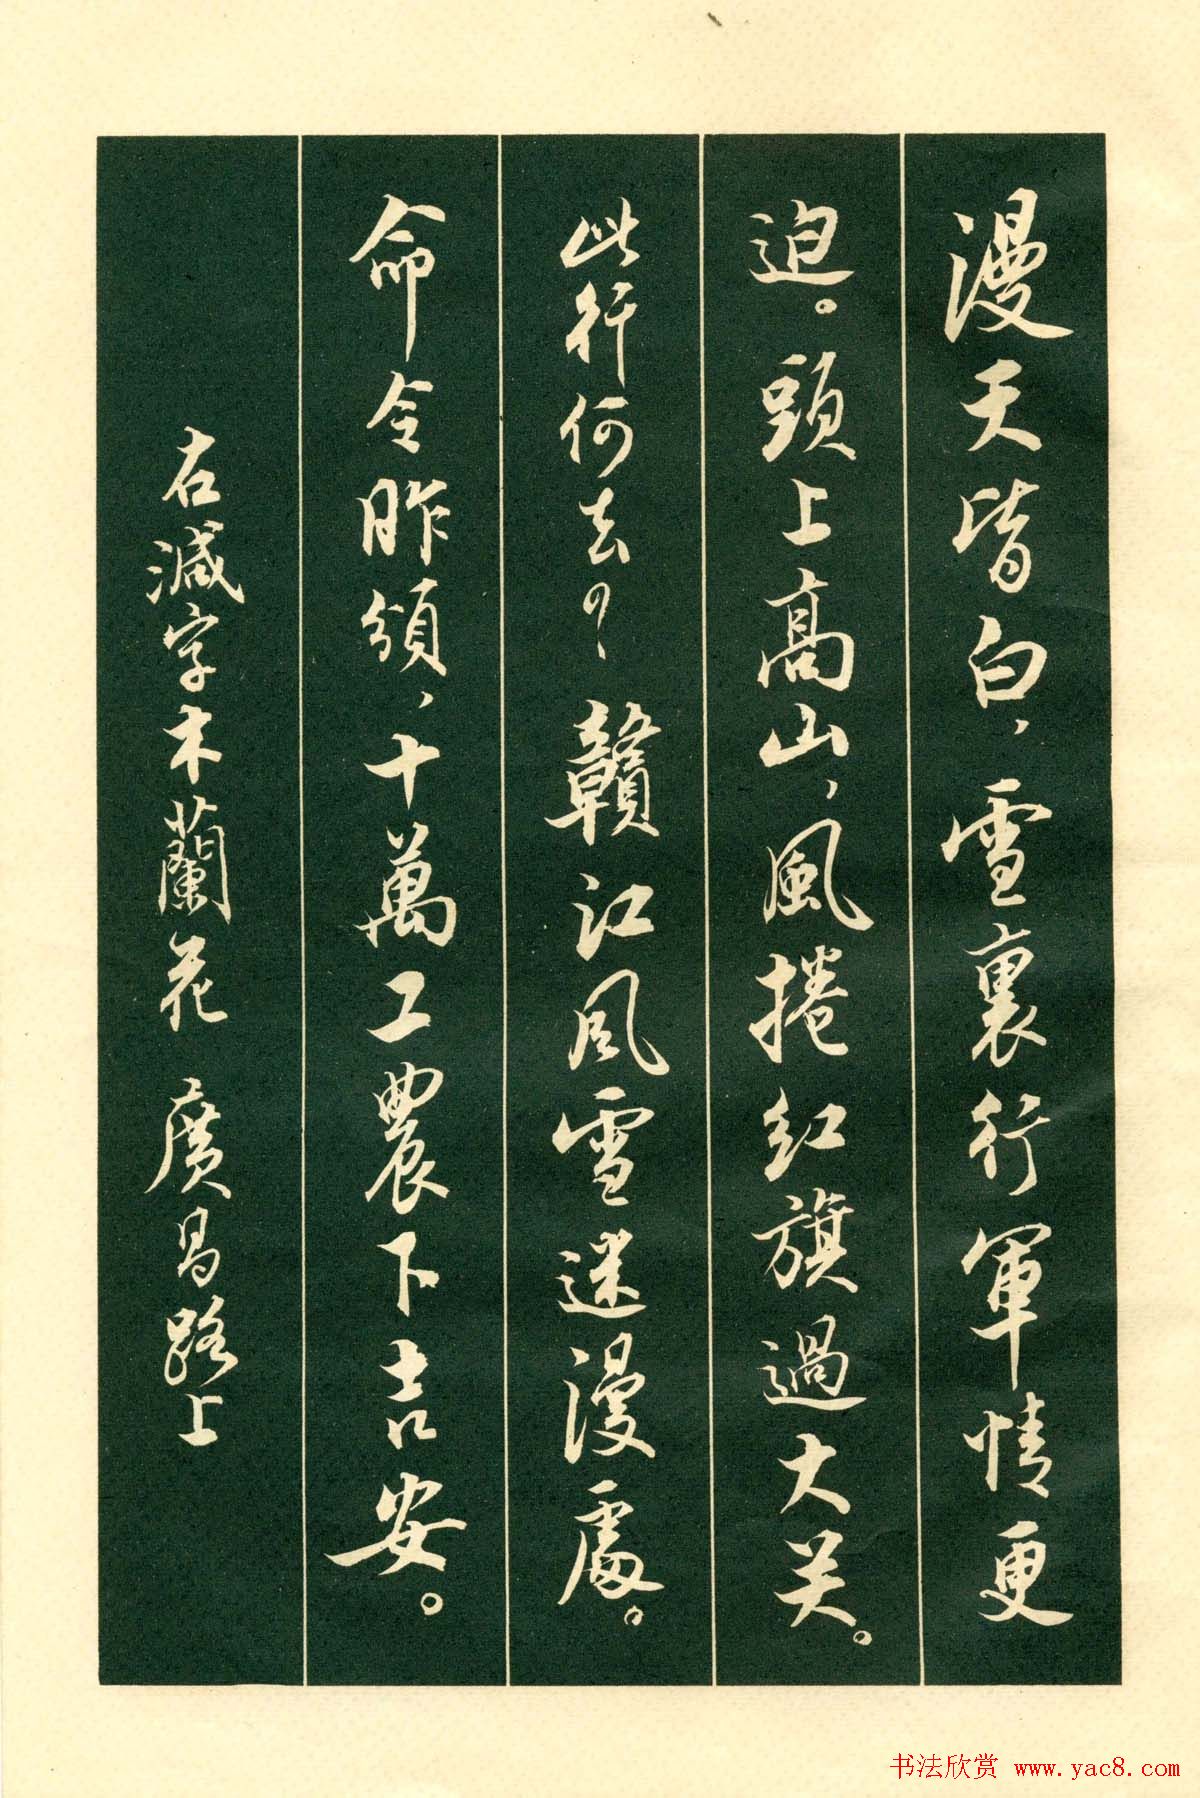 漫天皆白，雪裏行軍情更
迫。頭上高山，風捲红旗過大关。
此行何去？贛江风雪迷漫處。
命令昨頒，十萬工農下吉安。
右減字木蘭花 廣昌路上
书法欣赏 www.yac8.com